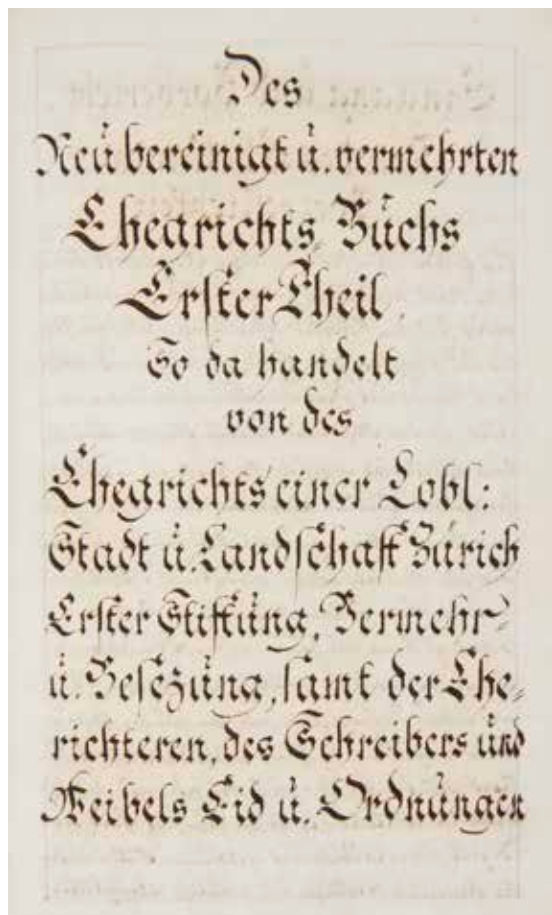 Des
Neü bereinigt ü. vermehrten
Ehegrichts Büchs
Erster Theil
So da handelt
von des
Ehegrichts einer Lobl:
Stadt ü. Landschafft Zürich
Erster Stifftüng, Vermehr-
ü. Besezüng, samt der Ehe-
richteren, des Schreibers ünd
Weibels Eid ü. Ordnüngen